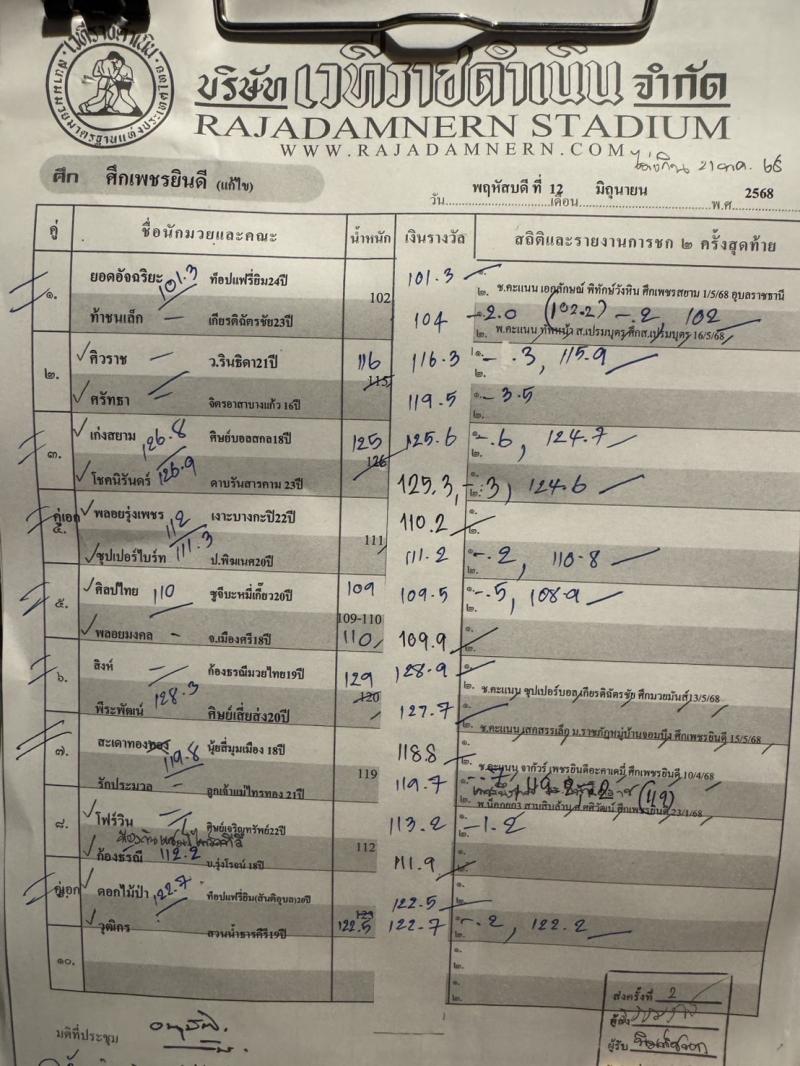 เวทีราชดำเนิน
สนามมวยมาตรฐานแห่งประเทศไทย
บริษัท เวทีราชดำเนิน จำกัด
RAJADAMNERN STADIUM
WWW.RAJADAMNERN.COM
ศึก ศึกเพชรยินดี (แก้ไข)
วัน พฤหัสบดี ที่ 12 เดือน มิถุนายน พ.ศ 2568
คู่ ชื่อนักมวยและคณะ น้ำหนัก เงินรางวัล สถิติและรายงานการชก ๒ ครั้งสุดท้าย
๑. ยอดอัจฉริยะ 101.3 ท็อปแฟรี่ยิม24ปี 102 101.3 ๑. ๒. ช.คะแนน เอกลักษณ์ พิทักษ์วังหิน ศึกเพชรสยาม 1/5/68 อุบลราชธานี
ท้าชนเล็ก เกียรติฉัตรชัย23ปี 104 -2.0 (102.2) -.2 102
๒. พ.คะแนน ทัพหน้า ส.เปรมบุตร ศึกส.เปรมบุตร 16/5/68
๒. ศิวราช ว.รินธิดา21ปี 116 116.3 ๑. -.3, 115.9 ๒.
ศรัทธา จิตรอาสาบางแก้ว 16ปี 115 119.5 ๑. -3.5 ๒.
๓. เก่งสยาม 126.8 ศิษย์บอลสกล18ปี 125 125.6 ๑. -.6, 124.7 ๒.
โชคนิรันดร์ 126.9 ดาบรันสารคาม 23ปี 126 125.3, -.3, 124.6
คู่เอก ๔. พลอยรุ่งเพชร 112 เงาะบางกะปิ22ปี 111 110.2 ๑. ๒.
ซุปเปอร์ไบร์ท 111.3 ป.พิฆเนศ20ปี 111.2 ๑. -.2, 110.8 ๒.
๕. ศิลป์ไทย 110 ชูจีบะหมี่เกี๊ยว20ปี 109 109.5 ๑. -.5, 108.9 ๒.
พลอยมงคล จ.เมืองศรี18ปี 109-110 110 109.9 ๑. ๒.
๖. สิงห์ ก้องธรณีมวยไทย19ปี 129 128.9 ๑. ๒. ช.คะแนน ซุปเปอร์บอล เกียรติฉัตรชัย ศึกมวยมันส์13/5/68
พีระพัฒน์ 128.3 ศิษย์เสี่ยส่ง20ปี 120 127.7 ๑. ๒. ช.คะแนน เสกสรรเล็ก ม.ราชภัฏหมู่บ้านจอมบึง ศึกเพชรยินดี 15/5/68
๗. สะเดาทองทอง 119.8 นุ้ยสี่มุมเมือง 18ปี 119 118.8 ๑. ๒. ช.คะแนน จากัวร์ เพชรยินดีอะคาเดมี่ ศึกเพชรยินดี 10/4/68
รักประมวล ลูกเจ้าแม่ไทรทอง 21ปี 119.7
๒. พ.น็อกยก3 สามสิบล้าน ส.ศติวัฒน์ ศึกเพชรยินดี 23/1/68
๘. โฟร์วิน ศิษย์เจริญทรัพย์22ปี 112 113.2 ๑. -1.2 ๒.
ก้องธรณี 112.2 บ.รุ่งโรจน์ 18ปี 111.9 ๑. ๒.
คู่เอก ดอกไม้ป่า 122.7 ท็อปแฟรี่ยิม(สันติอุบล)20ปี 123 122.5 ๑. ๒.
วุฒิกร สวนน้ำธารคีรี19ปี 122.5 122.7 ๑. -.2, 122.2 ๒.
๑๐. ๑. ๒.
๑. ๒.
มติที่ประชุม
ส่งครั้งที่ 2
ผู้ส่ง
ผู้รับ